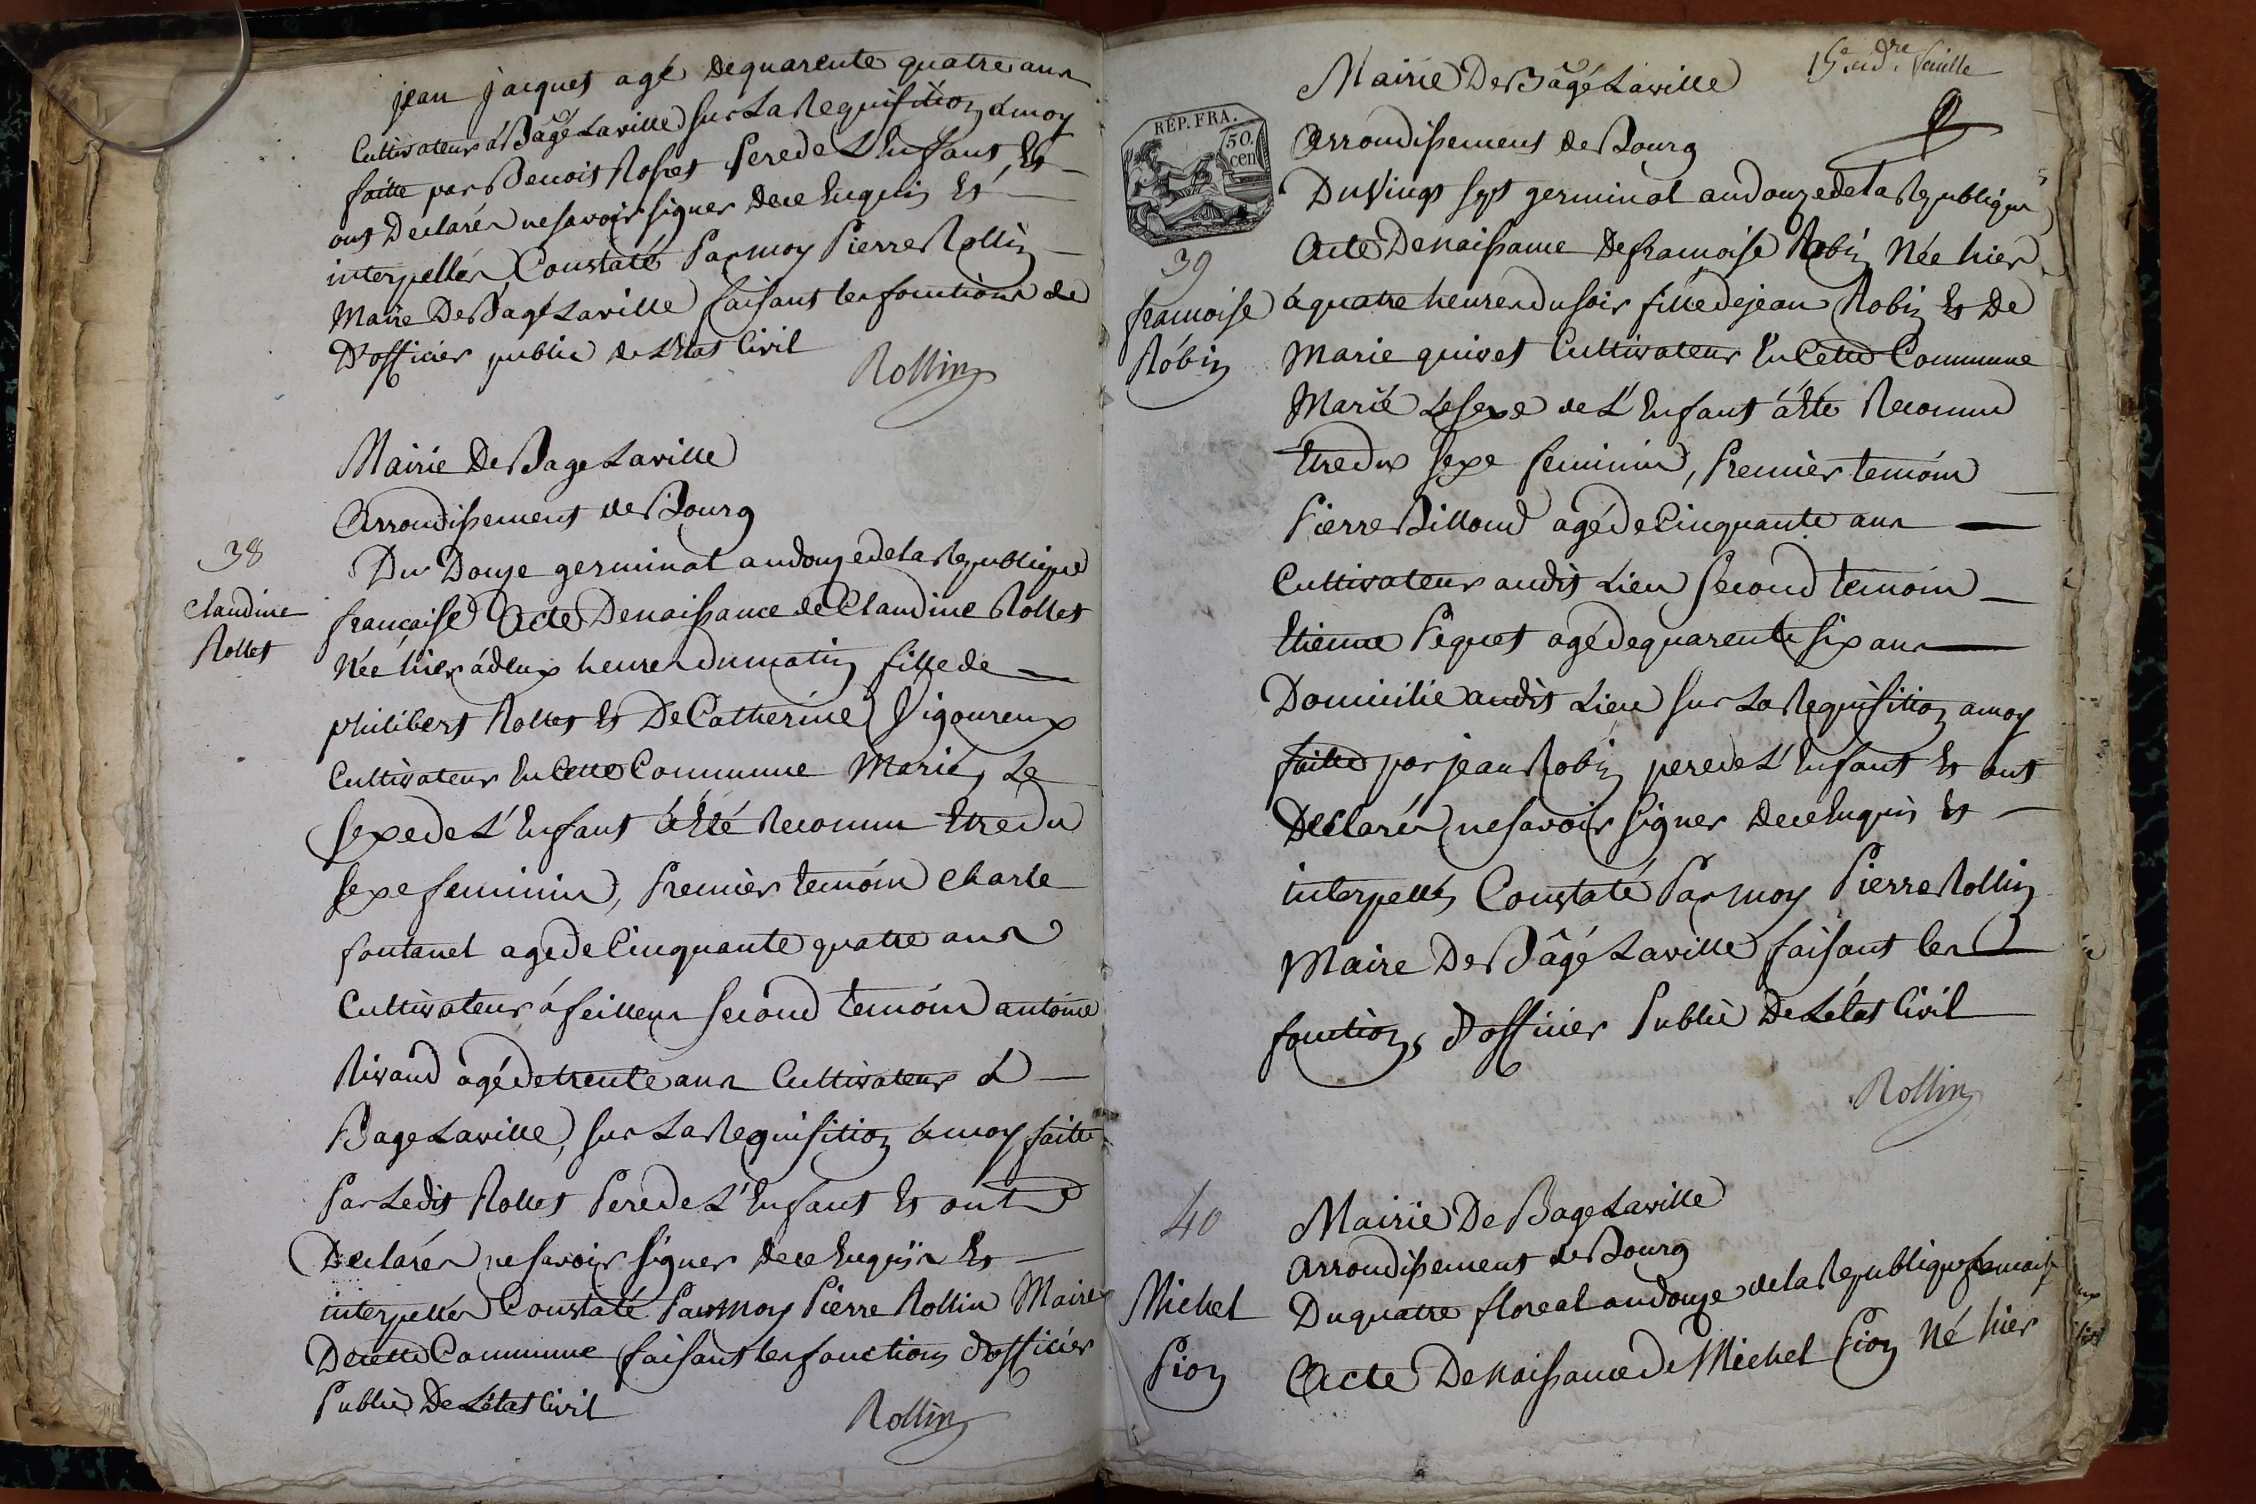 jean jacques agé de quarente quatre ans
Cultivateur à Bâgé Laville sur La Requisition à moy
faitte par Benoit Rosset Pere de L'Enfant, Et
ont Declarés ne savoir signer de ce Enquis Et
interpellés Constaté Par moy Pierre Rollin
Maire De Bâgé Laville faisant les fonctions de
D'officier public de L'Etat Civil
Rollin
Mairie De Bage Laville
Arrondissement de Bourg
38
Du Douze germinal an douze de la Republique
Claudine
Rollet
française Acte De naissance de Claudine Rollet
Née hier à deux heures du matin fille de
philibert Rollet Et De Catherine Vigoureux
Cultivateur En Cette Commune Marié, Le
sexe de L'Enfant à Eté Reconnu Etre du
sexe feminin, Premier temoin Charle
fontanel agé de Cinquante quatre ans
Cultivateur à feillens second temoin antoine
Rivaud àgé de trente ans Cultivateur à
Bage Laville, sur La Requisition à moy faitte
Par Ledit Rollet Pere de L'Enfant Et ont
Declarés ne savoir signer de ce Enquis Et
interpellés Constaté Par moy Pierre Rollin Maire
De cette Commune faisant les fonctions d'officier
Public De L'état Civil
Rollin
feuille
Mairie De Bâgé Laville
Arrondissement de Bourg
REP. FRA.
50.
cen
Du Vingt sept germinal an douze de la Republique
39
françoise
Robin
Acte De naissance De françoise Robin Née hier
à quatre heures du soir fille de jean Robin Et De
Marie quivet Cultivateur En Cette Commune
Marié Le sexe de L'Enfant à Eté Reconnu
Etre du sexe feminin, Premier temoin
Pierre Billoud agé de Cinquante ans
Cultivateur audit Lieu second temoin
Etienne Pequet agé de quarente six ans
Domicilié audit Lieu sur La Requisition a moy
faitte par jean Robin pere de L'Enfant Et ont
Declarés ne savoir signer de ce Enquis Et
interpellés Constaté Par moy Pierre Rollin
Maire De Bâgé Laville faisant les
fonctions d'officier Public De L'état Civil
Rollin
40
Michel
Pion
Mairie De Bage Laville
Arrondissement de Bourg
Du quatre floreal an douze de la Republique francaise
Acte De naissance de Michel Pion Né hier